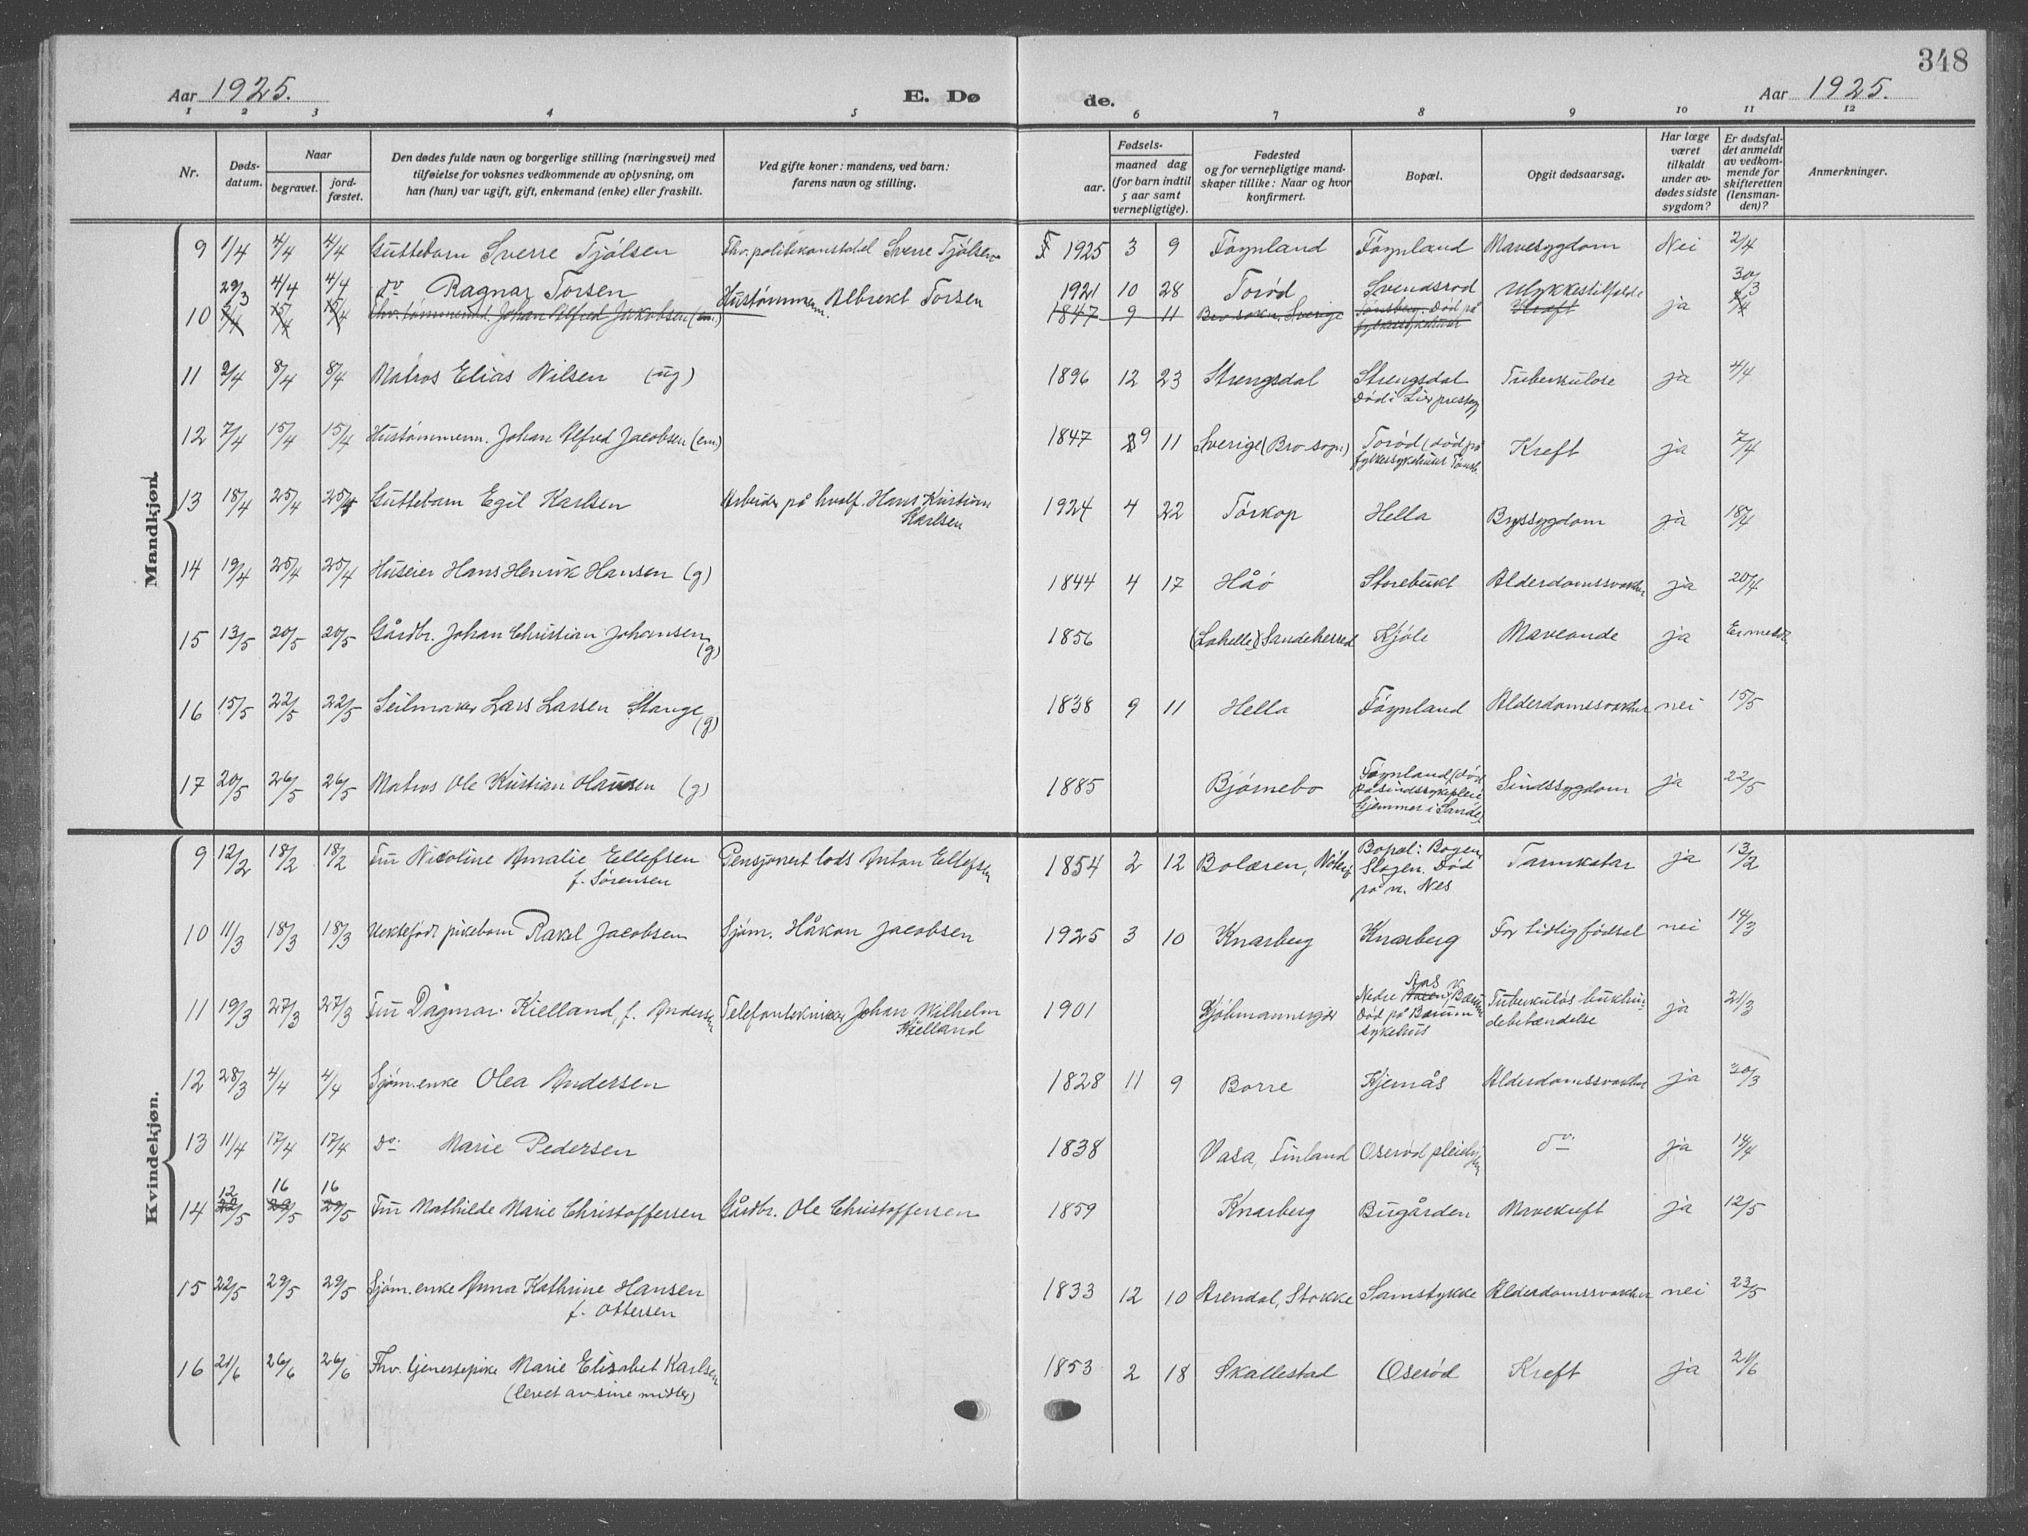 348
Aar 1925.
E. Dø
de.
Aar 1925.
1 2 3 4 5 6 7 8 9 10 11 12
Nr.
Døds-
datum.
Naar
begravet.
jord-
fæstet.
Den dødes fulde navn og borgerlige stilling (næringsvei) med
tilføielse for voksnes vedkommende av oplysning, om
han (hun) var ugift, gift, enkemand (enke) eller fraskilt.
Ved gifte koner: mandens, ved barn:
farens navn og stilling.
Fødsels-
aar.
maaned dag
(for barn indtil
5 aar samt
vernepligtige).
Fødested
og for vernepligtige mand-
skaper tillike: Naar og hvor
konfirmert.
Bopæl.
Opgit dødsaarsag.
Har læge
været
tilkaldt
under av-
dødes sidste
sygdom?
Er dødsfal-
det anmeldt
av vedkom-
mende for
skifteretten
(lensman-
den)?
Anmerkninger.
Mandkjøn.
9 1/4 4/4 4/4 Guttebarn Sverre Tjølsen Fhv. politikonstabel Sverre Tjølsen 1925 3 9 Føynland Føynland Mavesygdom Nei 2/4
29/3 4/4 4/4 do Ragnar Torsen Hustømmerm. Albrekt Torsen 1921 10 28 Torød Svendsrød Ulykkestilfelde 30/3
10 2/4 15/4 15/4 Fhv. tømmermd. Johan Alfred Jakobsen (em.) 1847 9 11 Bro sokn, Sverige Tønsberg. Død på ja
fylkessykehuset Kreft
11 2/4 8/4 8/4 Matros Elias Nilsen (ug) 1896 12 23 Strengsdal Strengsdal Tuberkulose ja 4/4
Død i Lier prestegj.
12 7/4 15/4 15/4 Hustømmerm. Johan Alfred Jacobsen (em.) 1847 9 11 Sverige (Bro sogn) Torød (død på Kreft ja 7/4
fylkessykehuset Tønsb.
13 18/4 25/4 25/4 Guttebarn Egil Karlsen Arbeider på hvalf. Hans Kristian 1924 4 22 Tørkop Hella Brystsygdom ja 18/4
Karlsen
14 19/4 25/4 25/4 Huseier Hans Henrik Hansen (g) 1844 4 17 Håø Storebukt Alderdomssvakhet ja 20/4
15 13/5 20/5 20/5 Gårdbr. Johan Christian Johansen 1856 (Lahelle) Sandeherred Kjøle Maveonde ja Er meldt
(g)
16 15/5 22/5 22/5 Seilmaker Lars Larsen Stange 1838 9 11 Hella Føynland Alderdomssvakhet nei 15/5
(g)
17 20/5 26/5 26/5 Matros Ole Kristian Olaussen (g) 1885 Bjørnebo Føynland (død Sindssygdom ja 22/5
på sindssykepleie
hjemmet i Sande)
Kvindekjøn.
9 12/2 18/2 18/2 Fru Nicoline Amalie Ellefsen Pensjonert lods Anton Ellefsen 1854 2 12 Bolæren, Nøterø Bopæl: Bogen, Tarmkatar ja 13/2
f. Sørensen Slagen. Død
på n. Nes
10 11/3 18/3 18/3 Uektefødt pikebarn Rakel Jacobsen Sjøm. Håkon Jacobsen 1925 3 10 Knarberg Knarberg For tidlig fødsel nei 14/3
11 19/3 27/3 27/3 Fru Dagmar Kielland, f. Andersen Telefontekniker Johan Wilhelm 1901 Kjøbmannsgjær Nedre Aas v. Bærum Tuberkuløs bukhin- ja 21/3
Kielland Død på Bærum debetændelse
sykehus
12 28/3 4/4 4/4 Sjøm.enke Olea Andersen 1828 11 9 Borre Kjernås Alderdomssvakhet ja 30/3
13 11/4 17/4 17/4 Do. Marie Pedersen 1838 Vasa, Finland Oserød pleiehjem do. ja 14/4
14 12/5 16/5 16/5 Fru Mathilde Marie Christoffersen Gårdbr. Ole Christoffersen 1859 Knarberg Bugården Mavekreft ja 12/5
15 22/5 29/5 29/5 Sjøm.enke Anna Kathrine Hansen 1833 12 10 Arendal, Stokke Samstykke Alderdomssvakhet nei 23/5
f. Ottersen
16 21/6 26/6 26/6 Fhv. tjenestepike Marie Elisabet Karlsen 1853 2 18 Skallestad Oserød Kreft ja 21/6
(levet av sine midler)